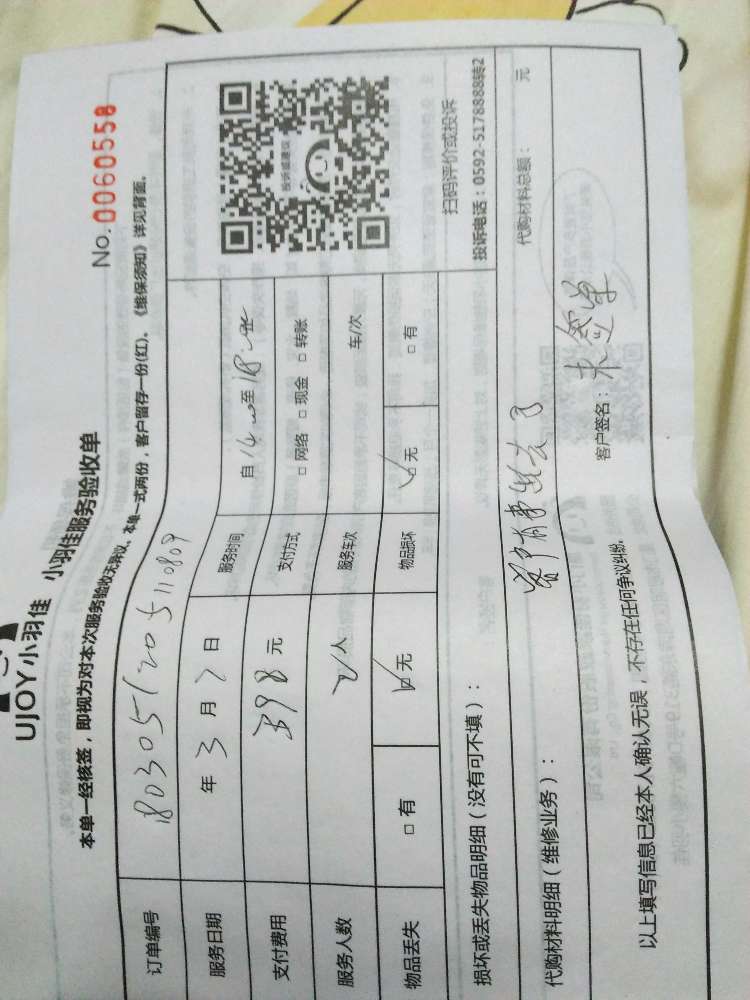 UJOY小羽佳 小羽佳服务验收单
No. 0060558
本单一经核签，即视为对本次服务验收无异议、本单一式两份，客户留存一份(红)、《维保须知》详见背面。
订单编号 1803051205110809
服务日期 年 3 月 7 日 服务时间 自 14:00 至 18:00
支付费用 398 元 支付方式 □ 网络 □ 现金 □ 转账
服务人数 2 人 服务车次 车/次
物品丢失 □ 有 □ 无 物品损坏 □ 无 □ 有
投诉或建议
扫码评价或投诉
投诉电话：0592-5178888转2
损坏或丢失物品明细（没有可不填）：
代购材料明细（维修业务）： 代购材料总额： 元
客户有事出去了
客户签名： 未签单
以上填写信息已经本人确认无误，不存在任何争议纠纷。